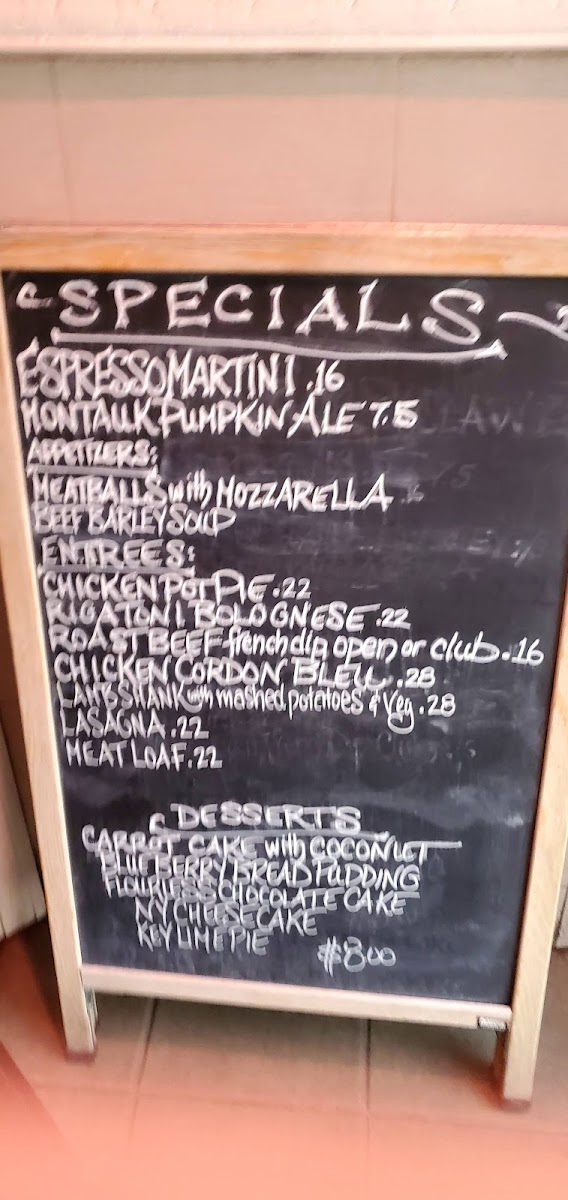 SPECIALS
ESPRESSO MARTINI .16
MONTAUK PUMPKIN ALE 7.5
APPETIZERS:
MEATBALLS with MOZZARELLA
BEEF BARLEY SOUP
ENTREES:
CHICKEN POT PIE .22
RIGATONI BOLOGNESE .22
ROAST BEEF french dip open or club .16
CHICKEN CORDON BLEU .28
LAMB SHANK with mashed potatoes & Veg .28
LASAGNA .22
MEATLOAF .22
DESSERTS
CARROT CAKE with COCONUT
BLUEBERRY BREAD PUDDING
FLOURLESS CHOCOLATE CAKE
NY CHEESECAKE
KEY LIME PIE $8.00